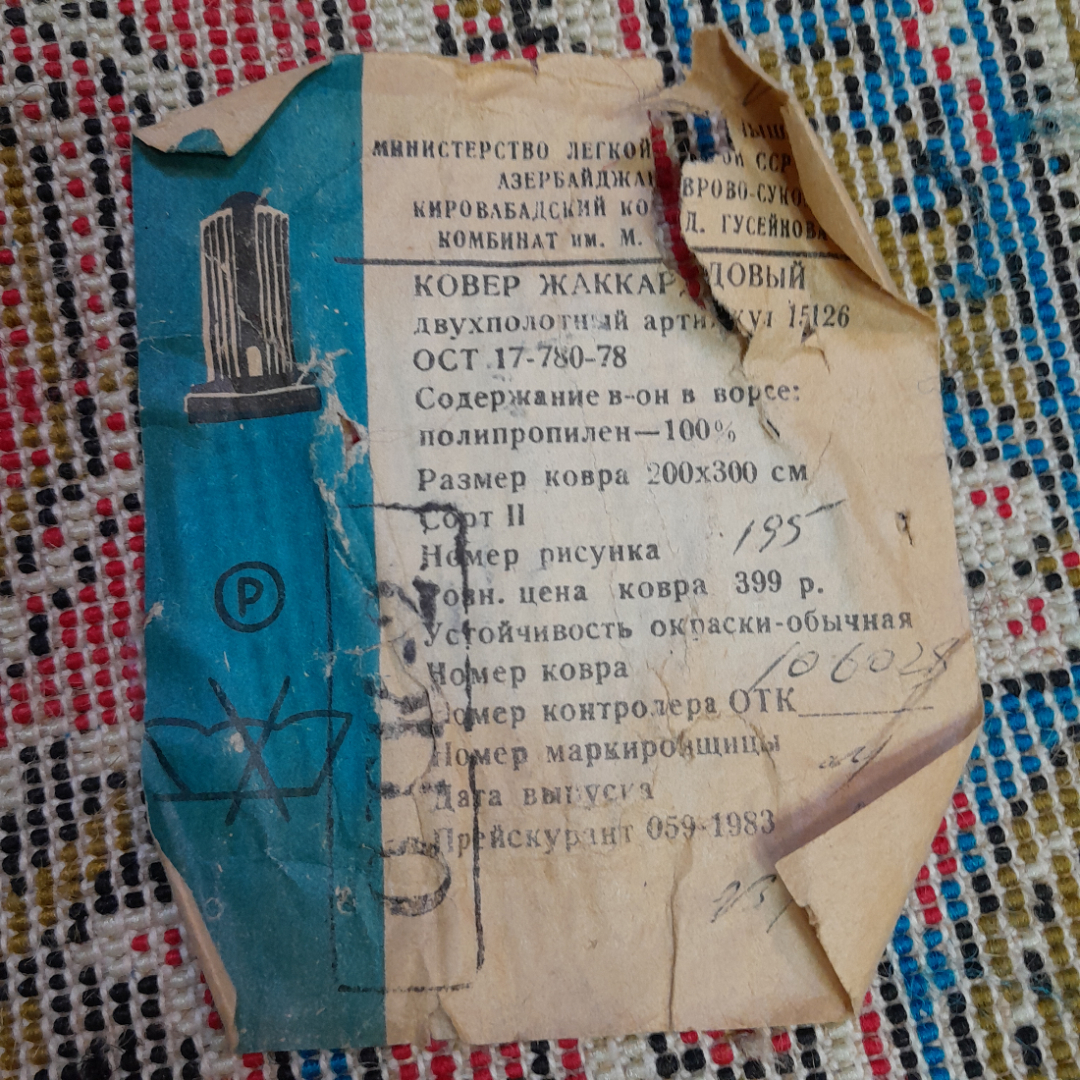 МИНИСТЕРСТВО ЛЕГКОЙ
ССР
КИРОВАБАДСКИЙ
КОМБИНАТ им. М. Д. ГУСЕЙНОВА
КОВЕР ЖАККАРДОВЫЙ
двухполотный артикул 15126
ОСТ 17-780-78
Содержание в-он в ворсе:
полипропилен—100%
Размер ковра 200х300 см
Сорт II
Номер рисунка 195
Розн. цена ковра 399 р.
Устойчивость окраски-обычная
Номер ковра 106028
Номер контролера ОТК
Номер маркировщицы
Дата выпуска
Прейскурант 059-1983
P